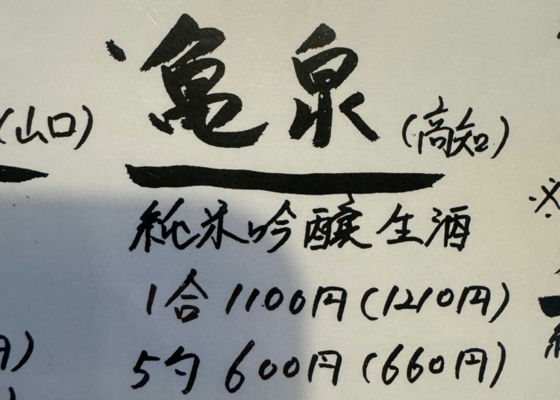 亀泉
(高知)
(山口)
純米吟醸生酒
1合 1100円(1210円)
5勺 600円(660円)